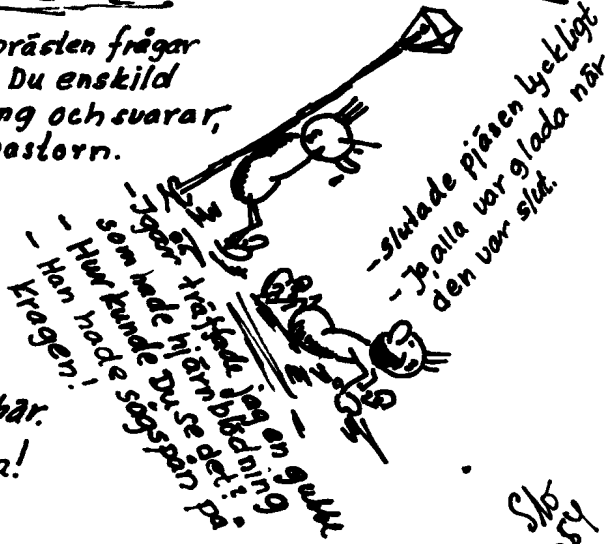 prästen frågar
Du enskild
ng och svarar,
pastorn.
- Slutade pjäsen lyckligt
- Ja, alla var glada när
den var slut.
- Igår träffade jag en gubbe
som hade hjärnblödning
- Hur kunde Du se det?
- Han hade sågspån på
kragen!
har.
a!